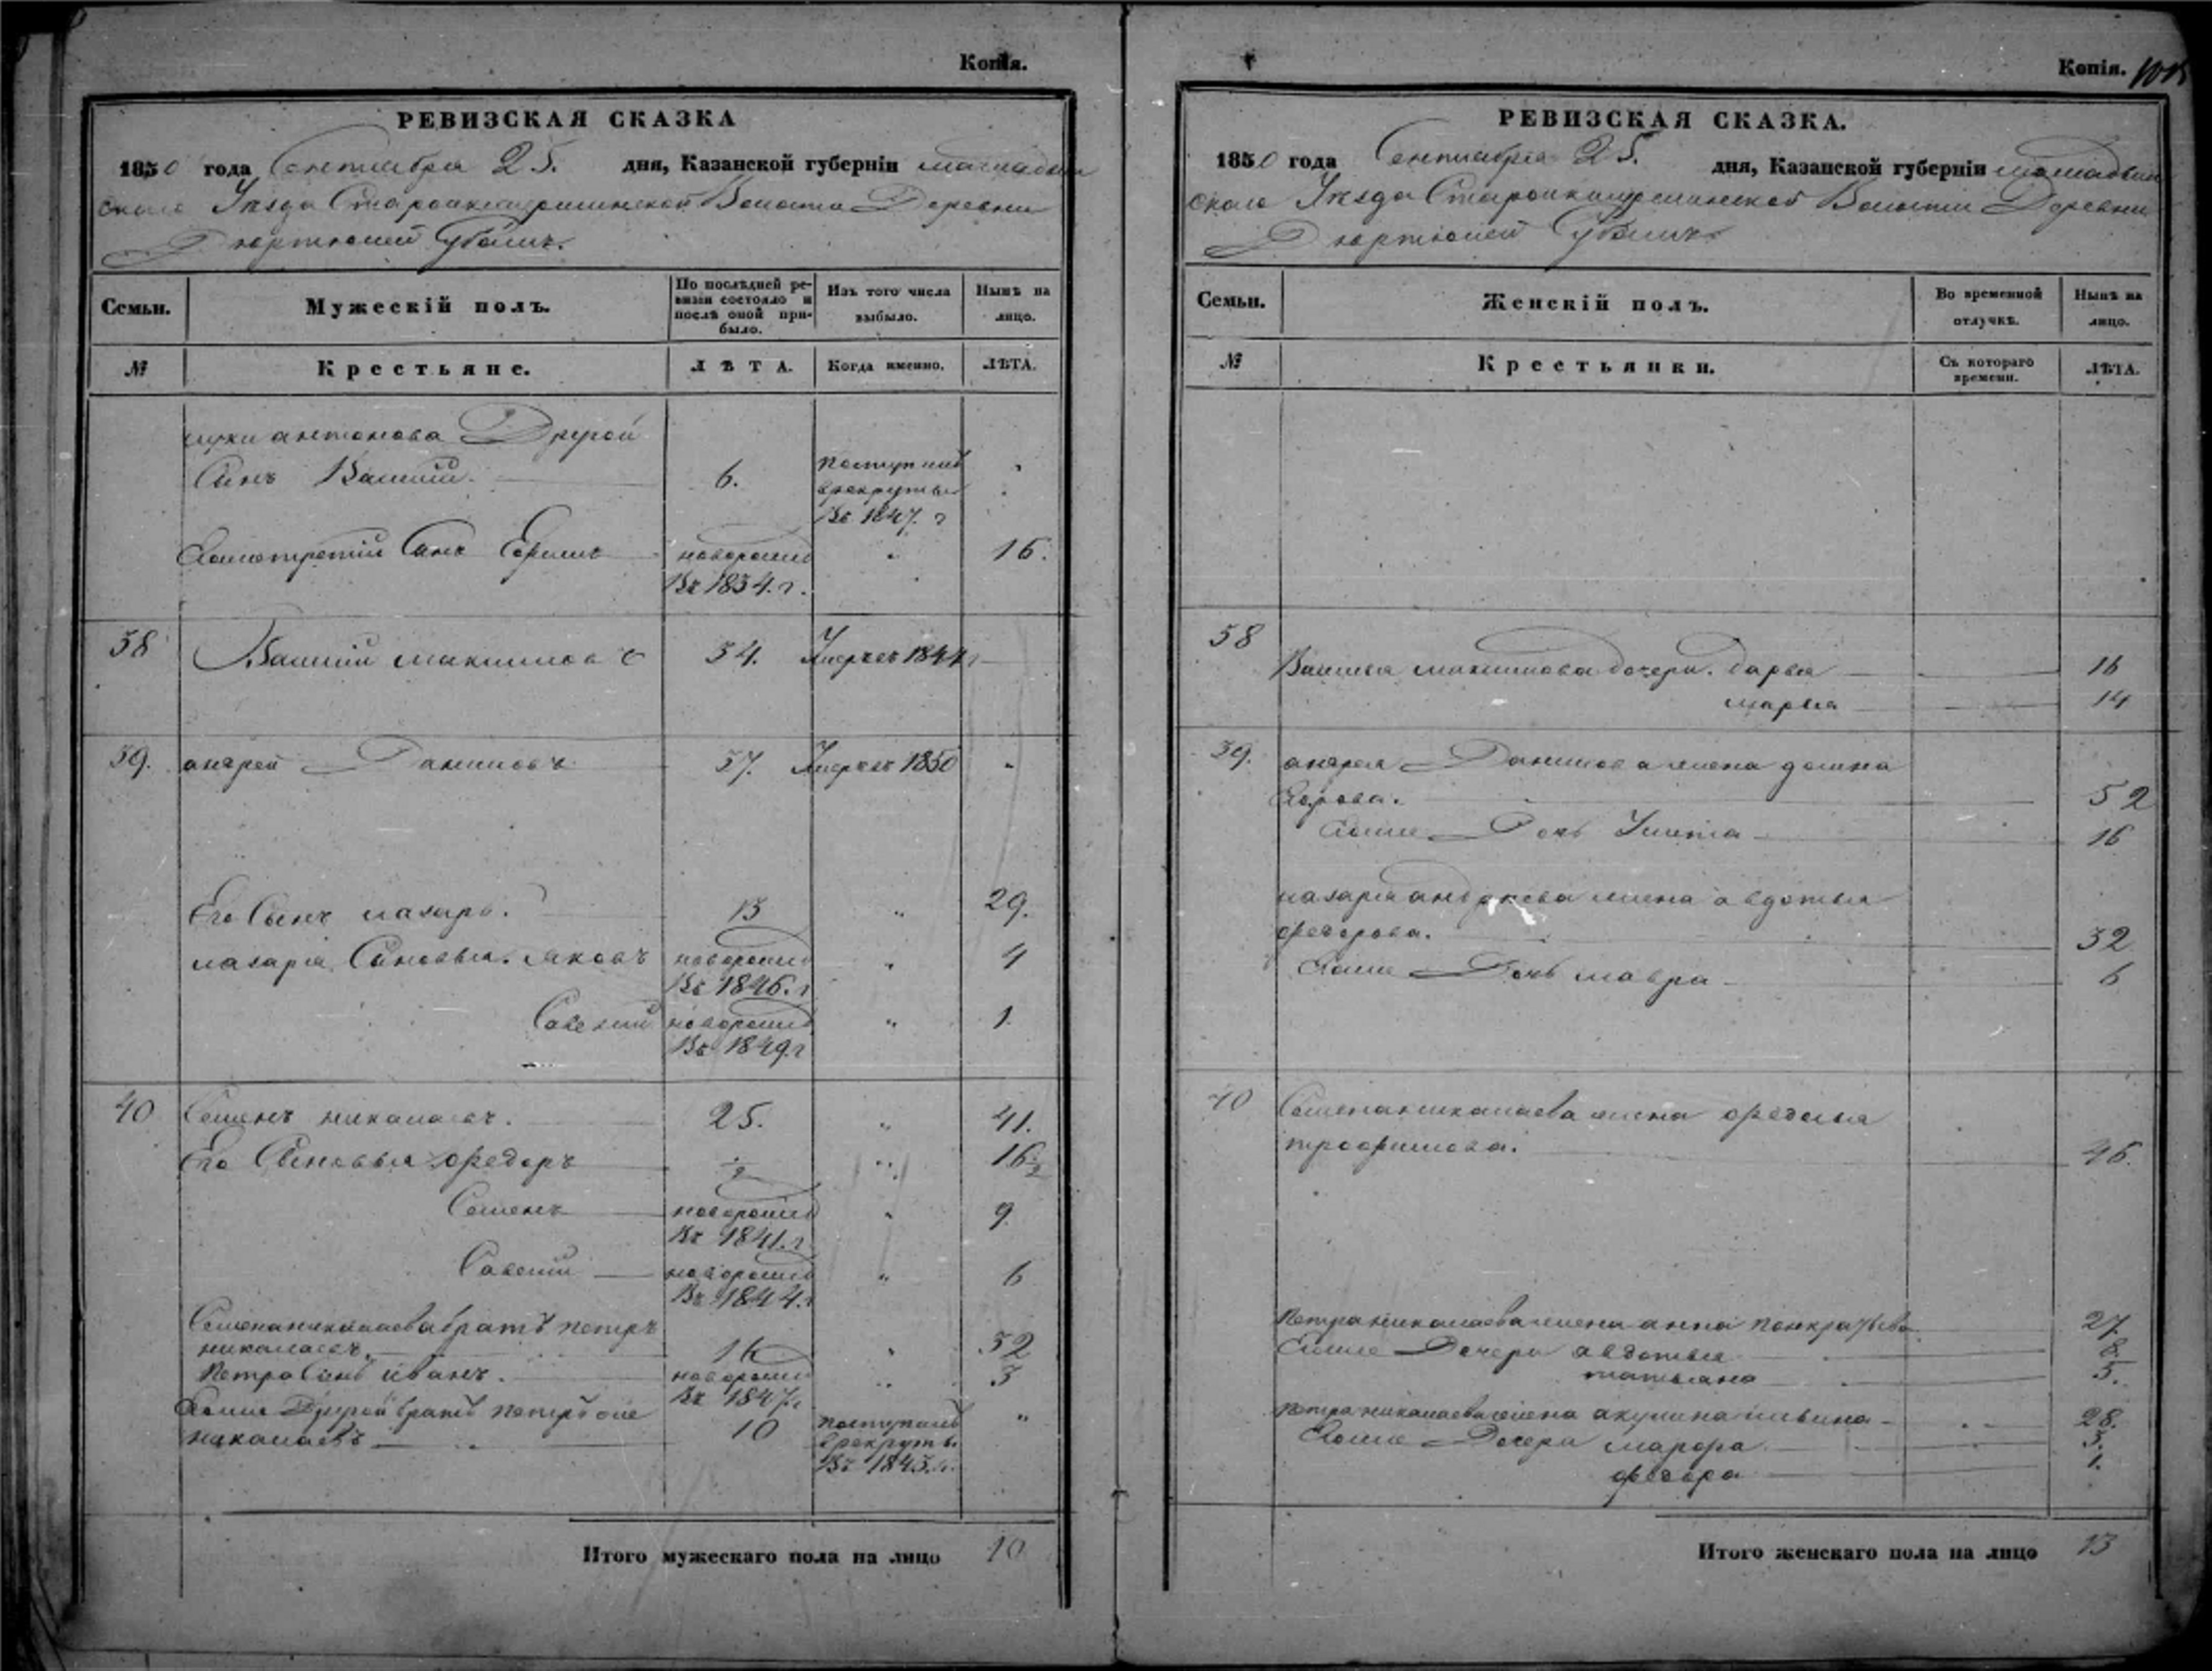 Копія.
РЕВИЗСКАЯ СКАЗКА
1850 года Сентября 25. дня, Казанской губерніи мамадыш
скаго Уѣзда Старошкинской Волости Деревни
Дюртюлей
Семьи.
Мужескій полъ.
По послѣдней ре-
визіи состояло и
послѣ оной при-
было.
Изъ того числа
выбыло.
Нынѣ на
лицо.
№
Крестьяне.
ЛѢТА.
Когда именно.
ЛѢТА.
луки антонова Другой
Сынъ Василий. 6. поступилъ
врекруты
Въ 1847. г
Егоже третий Сынъ Ефимъ новорожд " 16.
Въ 1834. г.
38 Василий максимовъ 34. Умеръ въ 1844 г
39. андрей Даниловъ 57. Умеръ въ 1850 "
Его Сынъ лазарь. 13 " 29.
лазаря Сыновья. яковъ новорожд " 4
Въ 1846. г
Савелий новорожд " 1.
Въ 1849. г
40 Семенъ николаевъ. 25. " 41.
Его Сыновья федоръ ½ " 16½
Семенъ новорожд " 9
Въ 1841. г
Савелий новорожд " 6
Въ 1844. г
Семена николаева братъ петръ
николаевъ. 16 " 32
Петра Сынъ иванъ. новорожд " 3
Въ 1847. г
Семена Другой братъ петръ же
николаевъ 10 поступилъ "
врекруты
Въ 1843. г.
Итого мужескаго пола на лицо 10
Копія.
РЕВИЗСКАЯ СКАЗКА.
1850 года Сентября 25. дня, Казанской губерніи мамадыш
скаго Уѣзда Волости Деревни
Дюртюлей
Семьи.
Женскій полъ.
Во временной
отлучкѣ.
Нынѣ на
лицо.
№
Крестьянки.
Съ котораго
времени.
ЛѢТА.
38
Василья максимова дочери. дарья 16
марья 14
39. андрея Данилова жена домна
Егорова. 52
Егоже Дочь Улита 16
лазаря андреева жена авдотья
федорова. 32
Егоже Дочь мавра 6
40 Семена николаева жена федосья
трофимова. 46.
Петра николаева жена анна 27.
Егоже Дочери авдотья 8.
татьяна 5.
Петра николаева жена акулина ильина 28.
Егоже Дочери марфа 3.
федора 1.
Итого женскаго пола на лицо 13